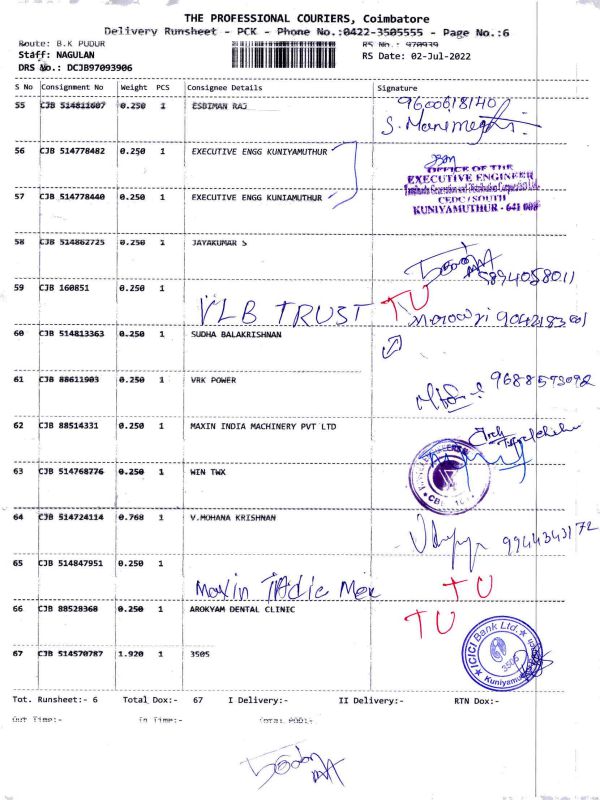 THE PROFESSIONAL COURIERS, Coimbatore
Delivery Runsheet - PCK - Phone No.:0422-3505555 - Page No.:6
Route: B.K PUDUR
RS No.: 970939
Staff: NAGULAN
RS Date: 02-Jul-2022
DRS No.: DCJB97093906
S No Consignment No Weight PCS Consignee Details Signature
55 CJB 514811607 0.250 1 ESBIMAN RAJ
9600618140
56 CJB 514778482 0.250 1 EXECUTIVE ENGG KUNIYAMUTHUR
OFFICE OF THE
EXECUTIVE ENGINEER
CEDC / SOUTH
KUNIYAMUTHUR - 641 008
57 CJB 514778440 0.250 1 EXECUTIVE ENGG KUNIAMUTHUR
58 CJB 514862725 0.250 1 JAYAKUMAR S
59 CJB 160851 0.250 1
VLB TRUST TU
60 CJB 514813363 0.250 1 SUDHA BALAKRISHNAN
61 CJB 88611903 0.250 1 VRK POWER
9688593092
62 CJB 88514331 0.250 1 MAXIN INDIA MACHINERY PVT LTD
63 CJB 514768776 0.250 1 WIN TWX
64 CJB 514724114 0.768 1 V.MOHANA KRISHNAN
9944343172
65 CJB 514847951 0.250 1
Maxin TU
66 CJB 88528368 0.250 1 AROKYAM DENTAL CLINIC
TU
67 CJB 514570787 1.920 1 3505
ICICI Bank Ltd.
3505
Tot. Runsheet:- 6 Total Dox:- 67 I Delivery:- II Delivery:- RTN Dox:-
Out Time:- In Time:- Total POD:-